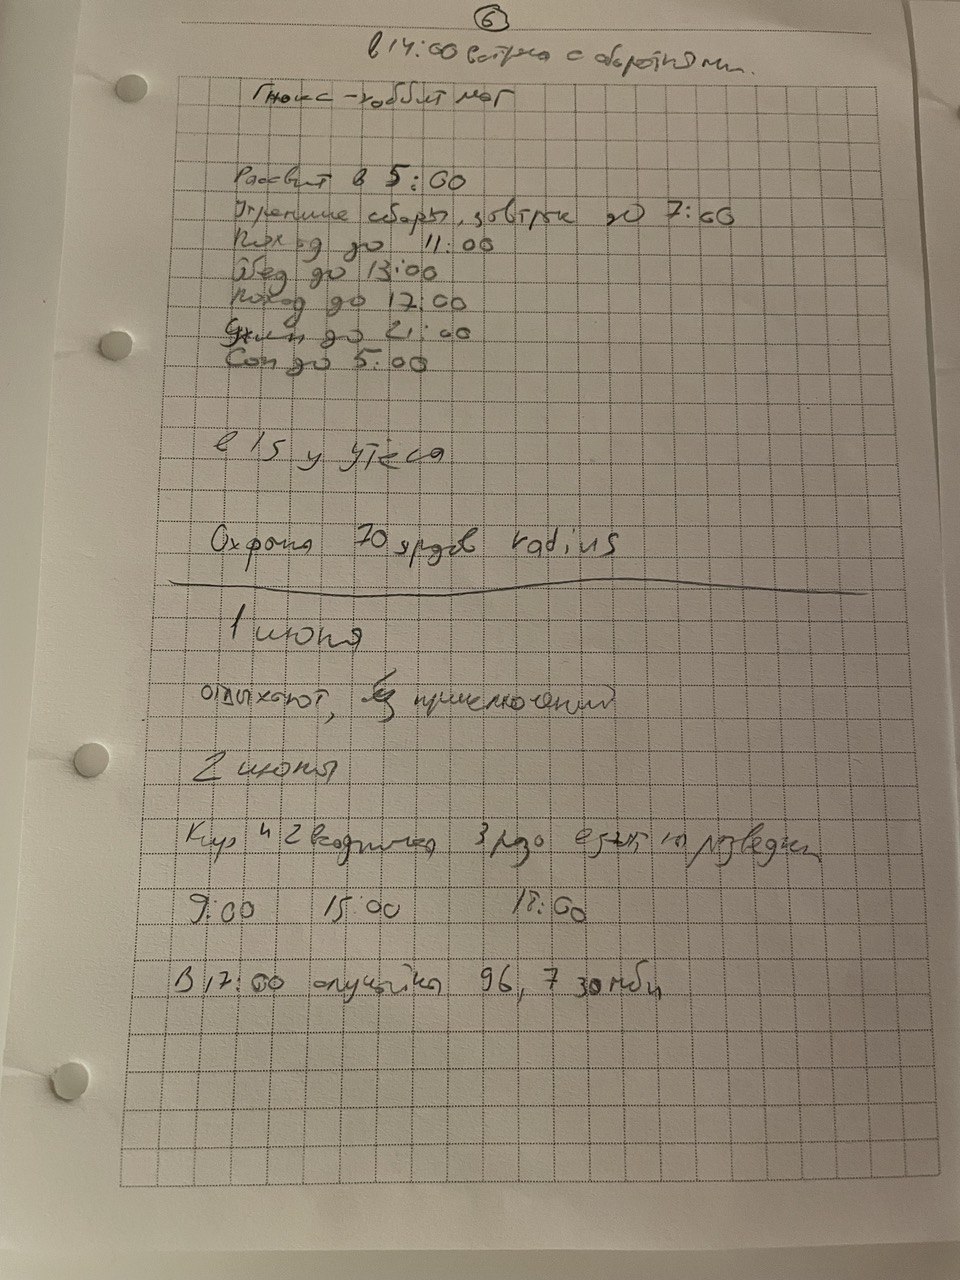 6
в 14:00 встреча с оборотнями.
Гнокс - хоббит маг
Рассвет в 5:00
Утренние сборы, завтрак до 7:00
Поход до 11:00
Обед до 13:00
Поход до 17:00
Ужин до 21:00
Сон до 5:00
в 15 у утёса
Охрана 70 ярдов radius
1 июня
отдыхают, без приключений
2 июня
Кир и 2 всадника 3 раза ездят на разведку
9:00 15:00 18:00
В 17:00 случайка 96, 7 зомби